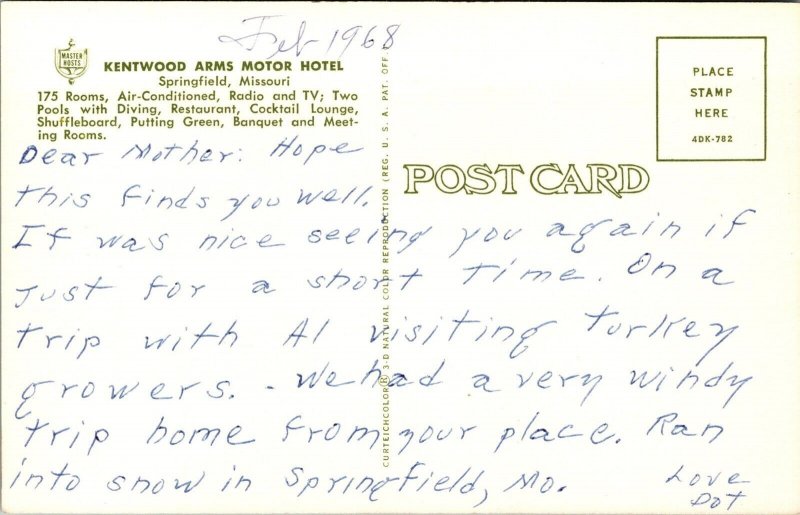 Feb 1968
MASTER
HOSTS
KENTWOOD ARMS MOTOR HOTEL
Springfield, Missouri
175 Rooms, Air-Conditioned, Radio and TV; Two
Pools with Diving, Restaurant, Cocktail Lounge,
Shuffleboard, Putting Green, Banquet and Meet-
ing Rooms.
PLACE
STAMP
HERE
4DK-782
POST CARD
CURTEICHCOLOR® 3-D NATURAL COLOR REPRODUCTION (REG. U. S. A. PAT. OFF.)
Dear Mother: Hope
this finds you well.
It was nice seeing you again if
just for a short time. On a
trip with Al visiting turkey
growers. - We had a very windy
trip home from your place. Ran
into snow in Springfield, Mo.
Love
Dot